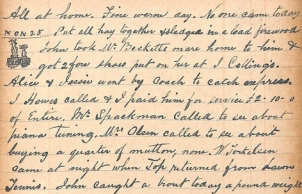 All at home. Fine warm day. No one came today
Put all hay together & sledged in a load firewood
John took Mr Becketts mare home to him &
got 2 fore shoes put on her at J Collings.
Alice & Jessie went by Coach to catch express.
J Howes called & I paid him for service £2-10-0
of Entire. Mr Spackman called to see about
piano tuning. Mrs Olsen called to see about
buying a quarter of mutton, none.
Came at night when Top returned from Lawn
Tennis. John caught a trout today a pound weight